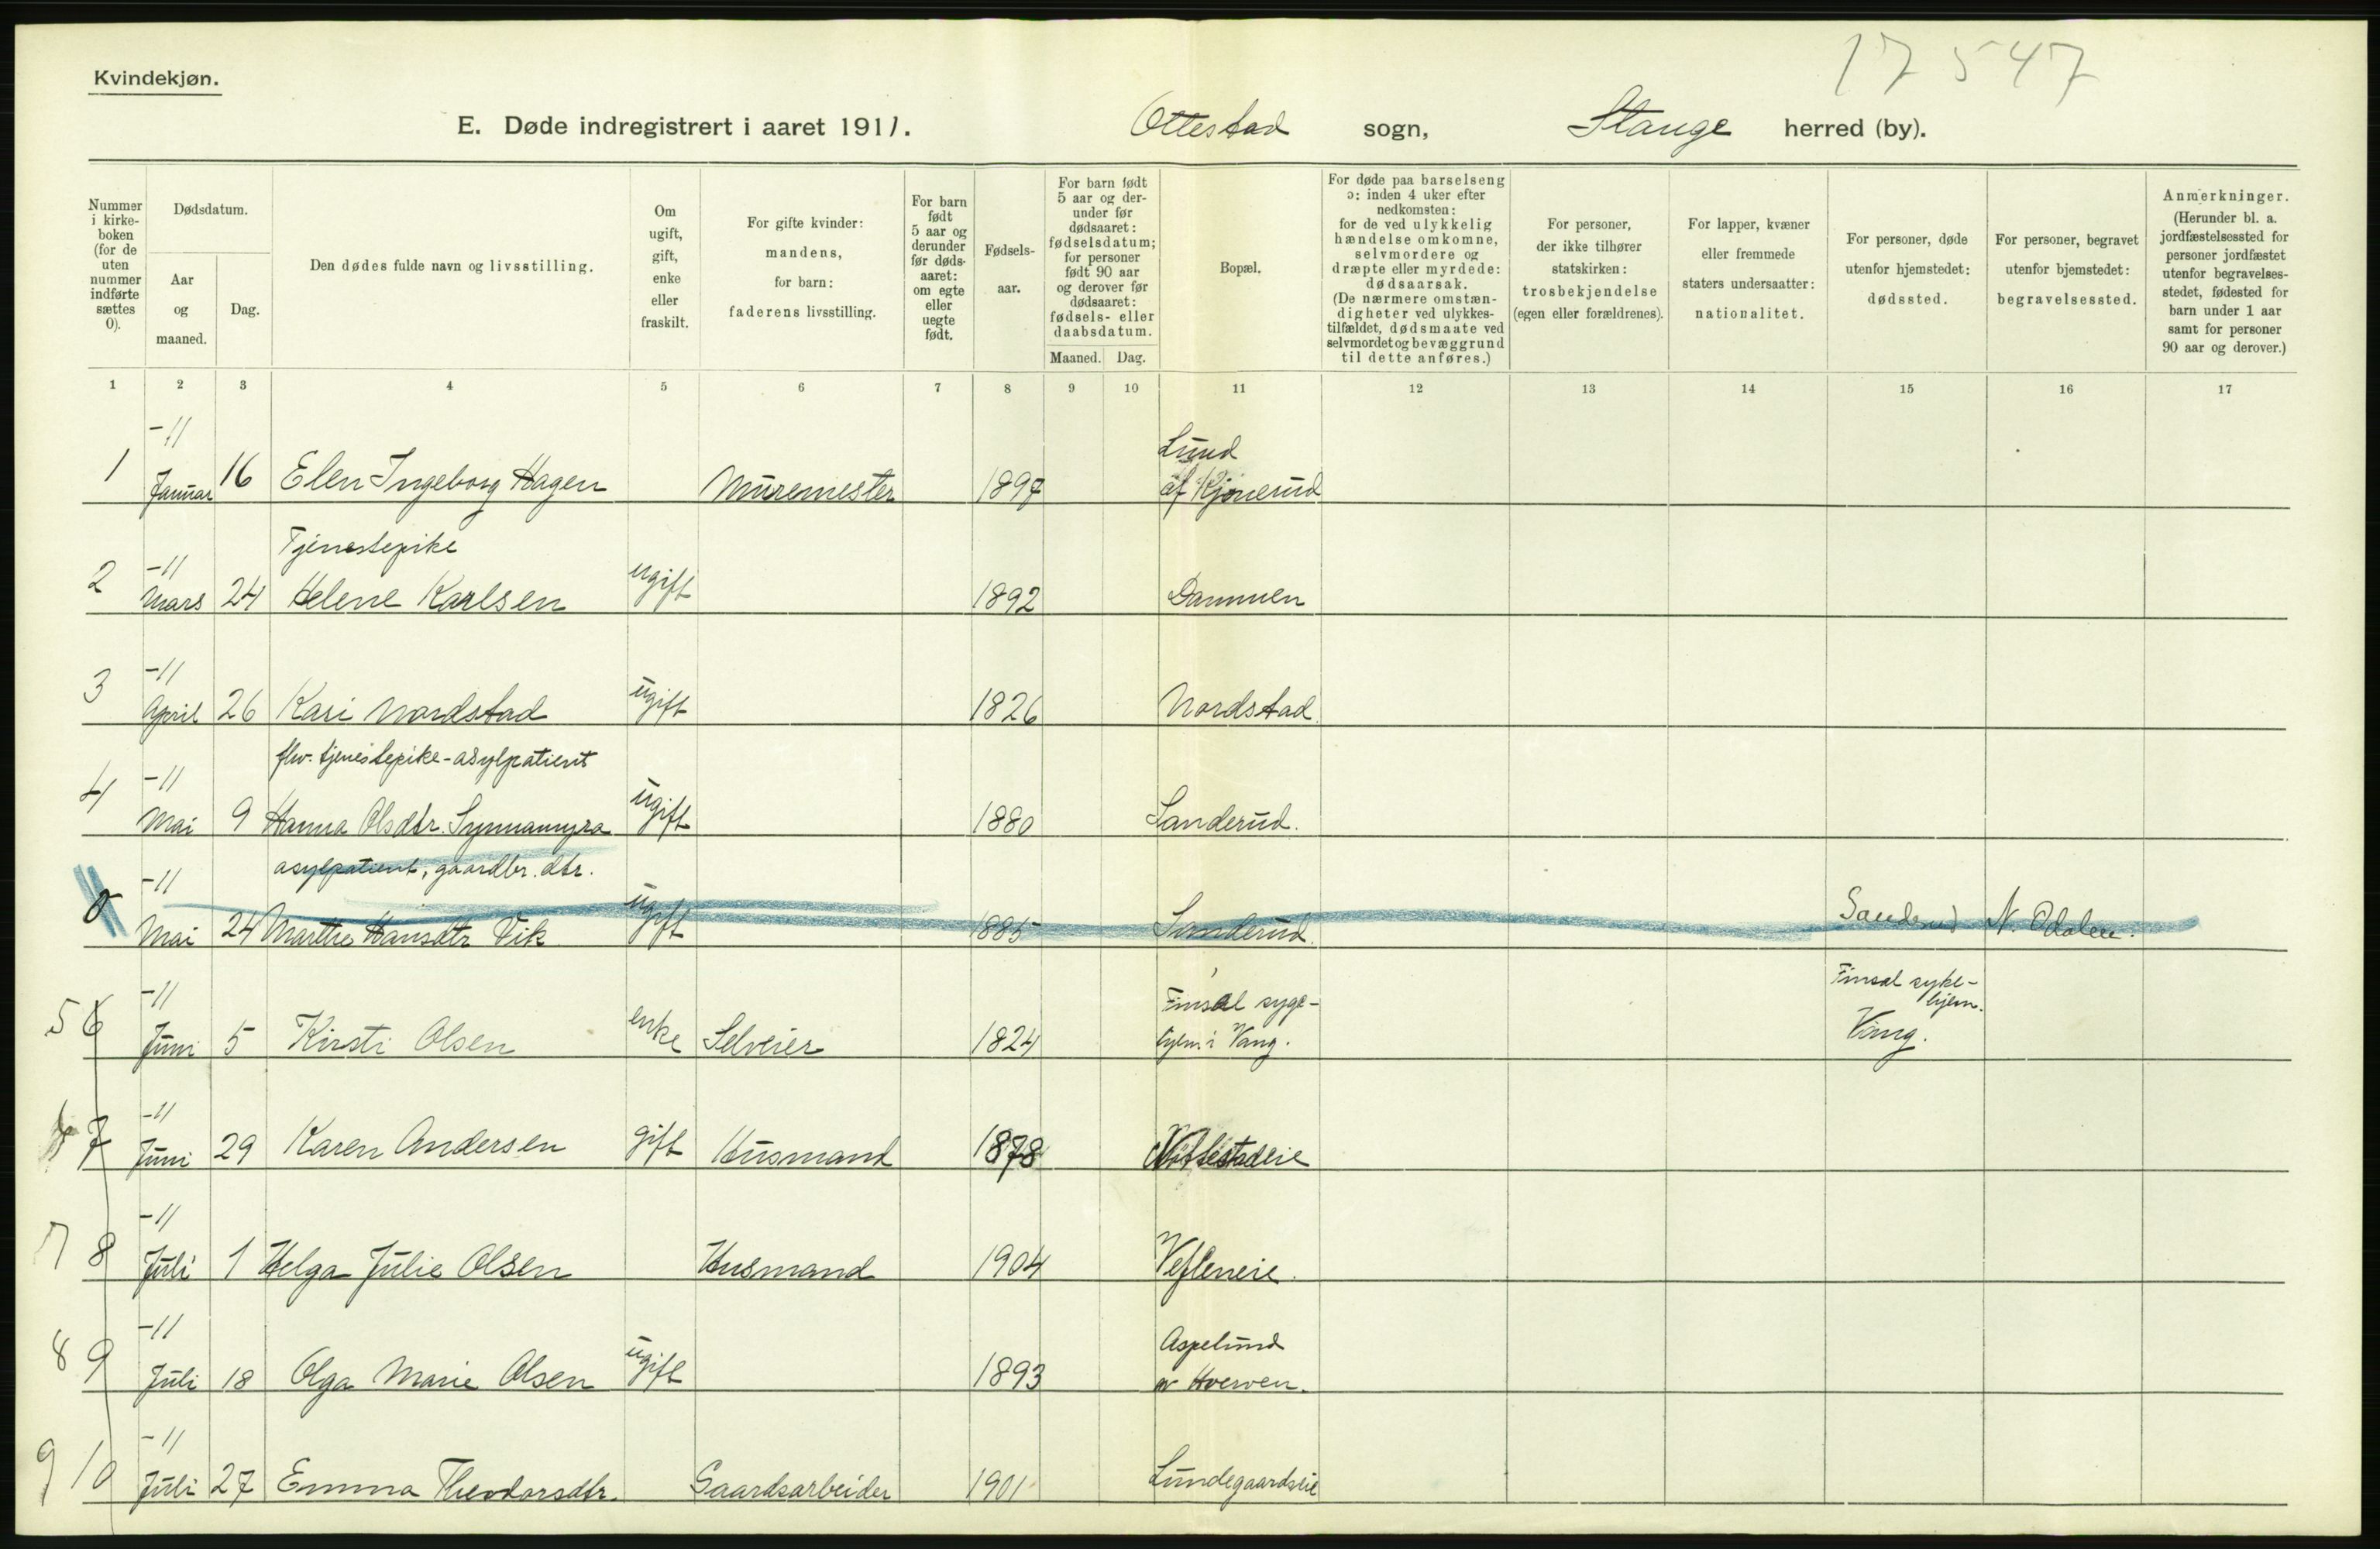 17 547
Kvindekjøn.
E. Døde indregistrert i aaret 1911. Ottestad sogn, Stange herred (by).
Nummer i kirke- boken (for de uten nummer indførte sættes 0).
Dødsdatum.
Aar og maaned.
Dag.
Den dødes fulde navn og livsstilling.
Om ugift, gift, enke eller fraskilt.
For gifte kvinder: mandens, for barn: faderens livsstilling.
For barn født 5 aar og derunder før døds- aaret: om egte eller uegte født.
Fødsels- aar.
For barn født 5 aar og der- under før dødsaaret: fødselsdatum; for personer født 90 aar og derover før dødsaaret: fødsels- eller daabsdatum.
Maaned. Dag.
Bopæl.
For døde paa barselseng ɔ: inden 4 uker efter nedkomsten: for de ved ulykkelig hændelse omkomne, selvmordere og dræpte eller myrdede: dødsaarsak. (De nærmere omstæn- digheter ved ulykkes- tilfældet, dødsmaate ved selvmordet og bevæggrund til dette anføres.)
For personer, der ikke tilhører statskirken: trosbekjendelse (egen eller forældrenes).
For lapper, kvæner eller fremmede staters undersaatter: nationalitet.
For personer, døde utenfor hjemstedet: dødssted.
For personer, begravet utenfor bjemstedet: begravelsessted.
Anmerkninger. (Herunder bl. a. jordfæstelsessted for personer jordfæstet utenfor begravelses- stedet, fødested for barn under 1 aar samt for personer 90 aar og derover.)
1 2 3 4 5 6 7 8 9 10 11 12 13 14 15 16 17
-11 Lund
1 Januar 16 Elen Ingeborg Hagen Muremester 1897 af Kjonerud
-11 Tjenestepike
2 Mars 24 Helene Karlsen ugift 1892 Dammen
-11
3 April 26 Kari Nordstad ugift 1826 Nordstad
-11 flv. tjenestepike - asylpatient
4 Mai 9 Hanna Olsdtr. Synnamyra ugift 1880 Sanderud.
-11 asylpatient, gaardbr. dtr.
0 Mai 24 Marthe Hansdtr Vik ugift 1885 Sanderud. Sanderud N. Odalen.
-11 Finsal syge- Finsal syke- hjem.
5 6 Juni 5 Kirsti Olsen enke Selveier 1824 hjem i Vang. Vang.
-11
7 Juni 29 Karen Andersen gift Husmand 1878
-11
7 8 Juli 1 Helga Julie Olsen Husmand 1904 Vefleneie.
-11 Aspelund
8 9 Juli 18 Olga Marie Olsen ugift 1893 av Hverven.
-11
9 10 Juli 27 Emma Theodorsdtr. Gaardsarbeider 1901 Lundegaardseie